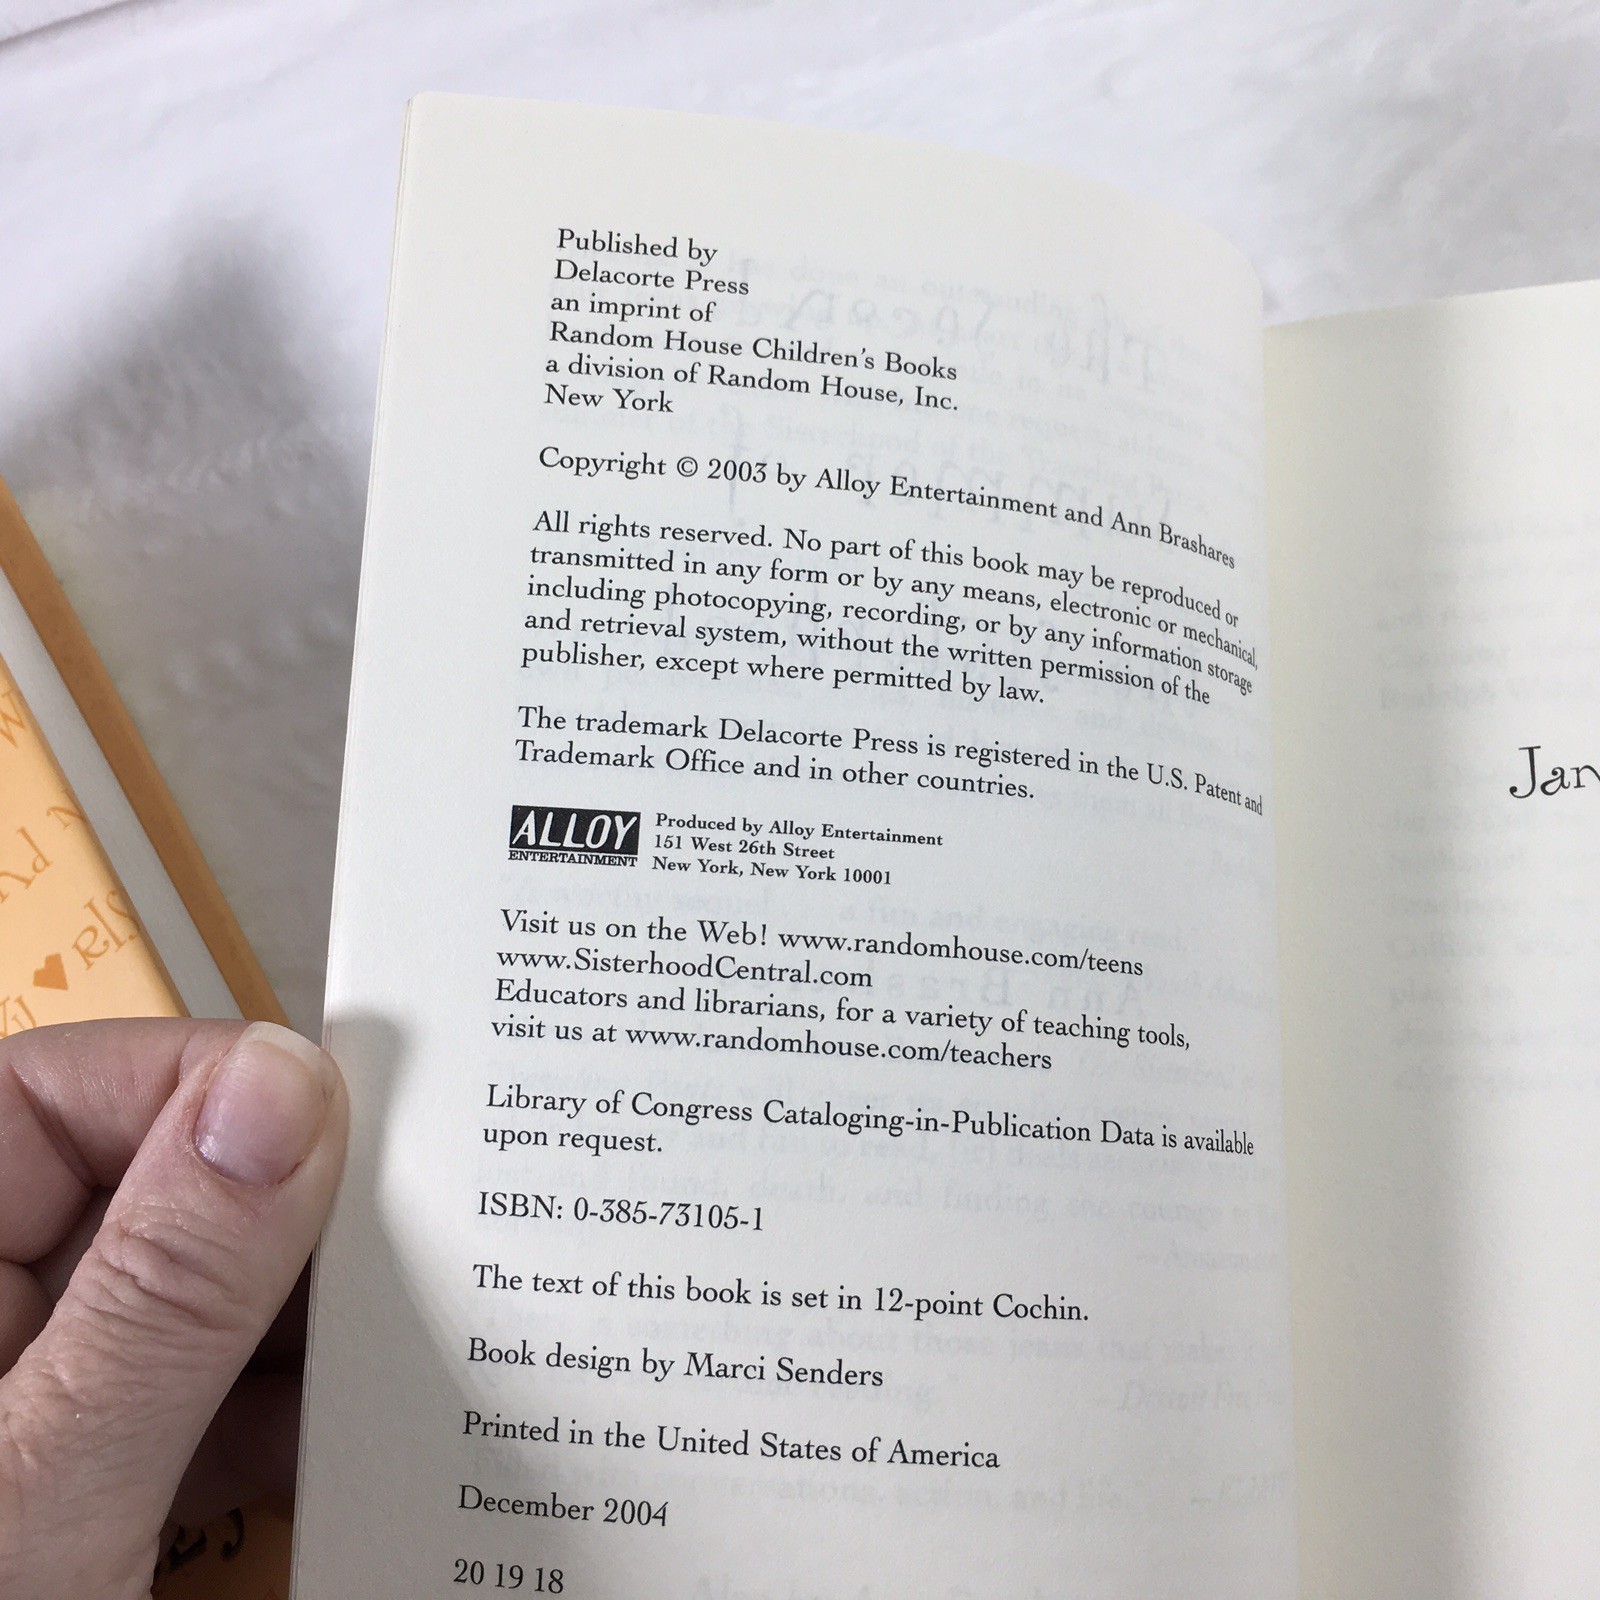 Published by
Delacorte Press
an imprint of
Random House Children's Books
a division of Random House, Inc.
New York
Copyright © 2003 by Alloy Entertainment and Ann Brashares
All rights reserved. No part of this book may be reproduced or
transmitted in any form or by any means, electronic or mechanical,
including photocopying, recording, or by any information storage
and retrieval system, without the written permission of the
publisher, except where permitted by law.
The trademark Delacorte Press is registered in the U.S. Patent and
Trademark Office and in other countries.
ALLOY
ENTERTAINMENT
Produced by Alloy Entertainment
151 West 26th Street
New York, New York 10001
Visit us on the Web! www.randomhouse.com/teens
www.SisterhoodCentral.com
Educators and librarians, for a variety of teaching tools,
visit us at www.randomhouse.com/teachers
Library of Congress Cataloging-in-Publication Data is available
upon request.
ISBN: 0-385-73105-1
The text of this book is set in 12-point Cochin.
Book design by Marci Senders
Printed in the United States of America
December 2004
20 19 18
Jan